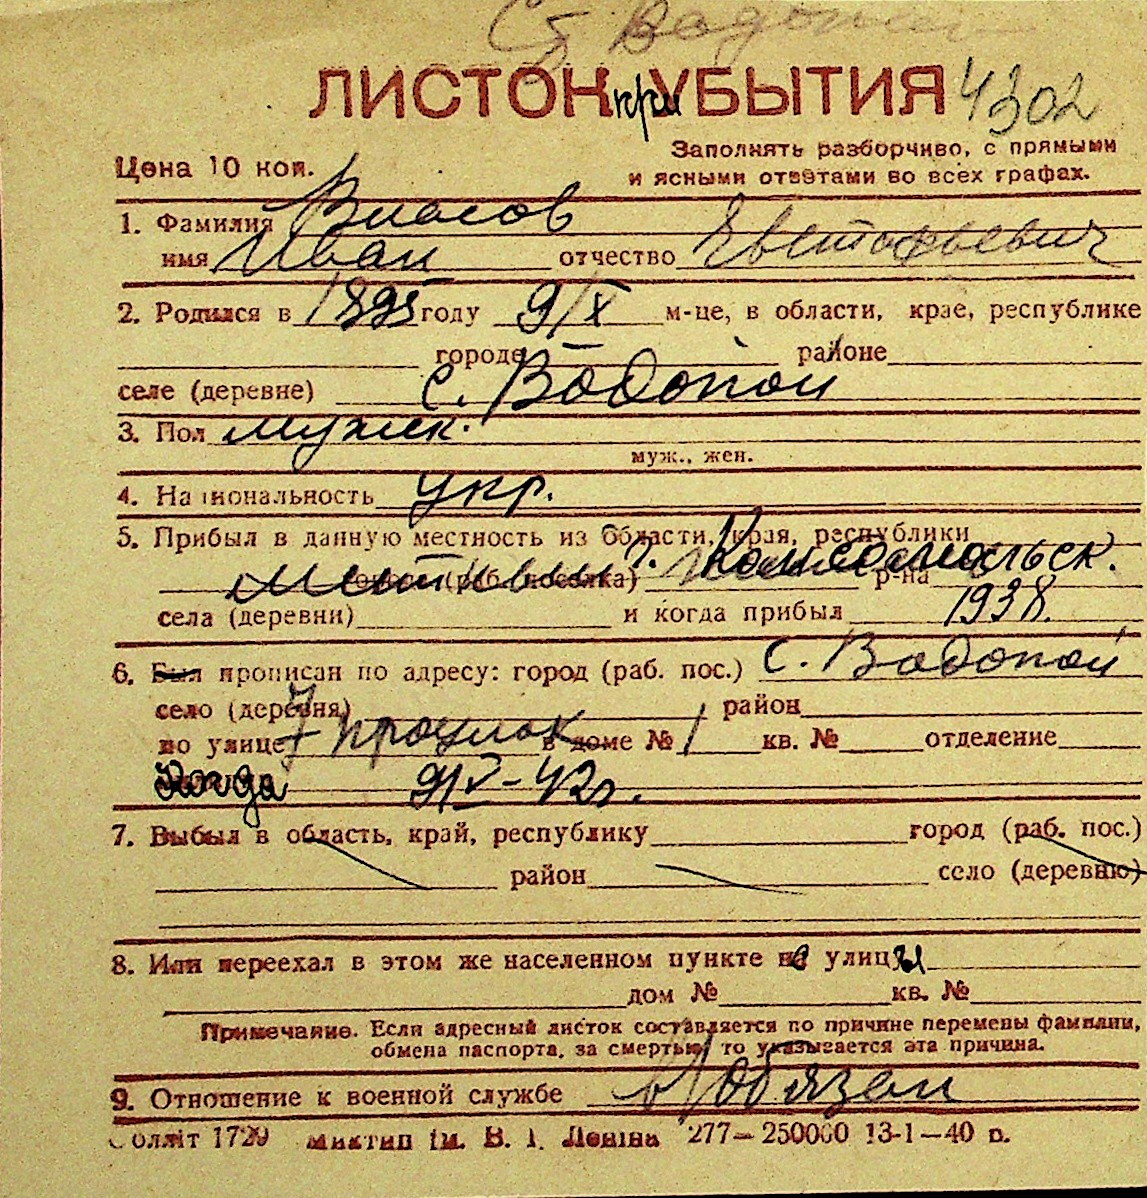 Ст Водопой
ЛИСТОК при УБЫТИЯ 4302
Заполнять разборчиво, с прямыми
Цена 10 коп. и ясными ответами во всех графах.
1. Фамилия Власов
имя Иван отчество Евстафьевич
2. Родился в 1895 году 9/X м-це, в области, крае, республике
городе районе
селе (деревне) с. Водопой
3. Пол мужск.
муж., жен.
4. Национальность укр.
5. Прибыл в данную местность из области, края, республики
местный г. Комсомольск. р-на
села (деревни) и когда прибыл 1938.
6. Был прописан по адресу: город (раб. пос.) с. Водопой
село (деревня) район
по улице 7 проулок в доме № 1 кв. № отделение
Когда 9/V-42г.
7. Выбыл в область, край, республику город (раб. пос.)
район село (деревню)
8. Или переехал в этом же населенном пункте с улицы
дом № кв. №
Примечание. Если адресный листок составляется по причине перемены фамилии,
обмена паспорта, за смертью, то указывается эта причина.
9. Отношение к военной службе в/обязан
Облліт 1729 Миктип ім. В. І. Леніна 277—250000 13-1—40 р.